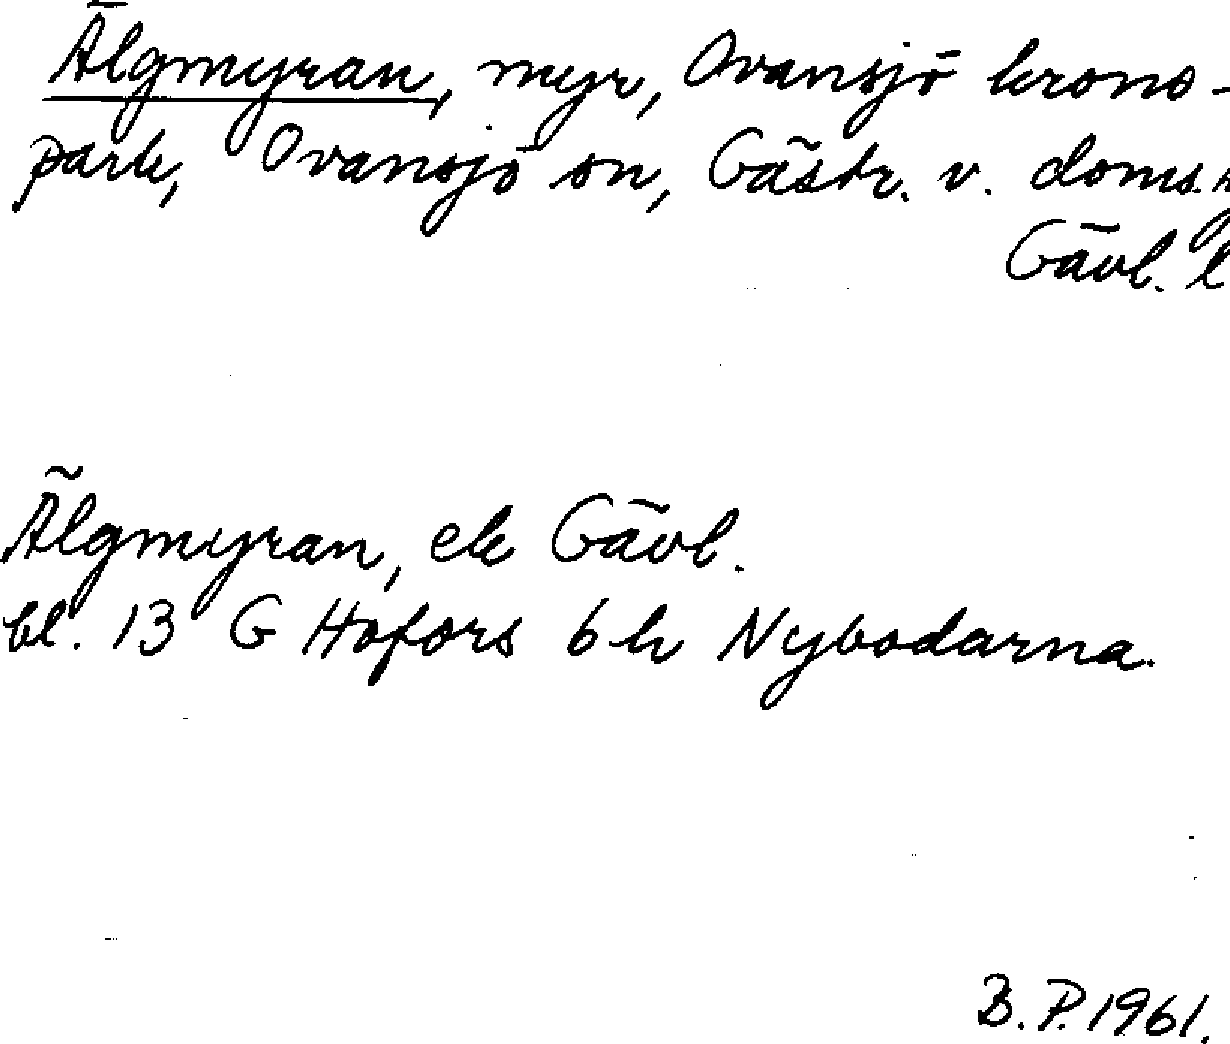 Älgmyran, myr, Ovansjö krono-
park, Ovansjö sn, Gästr. v. doms.
Gävl. l
Älgmyran, ek Gävl.
bl. 13 G Hofors 6 h Nybodarna.
B. P. 1961.